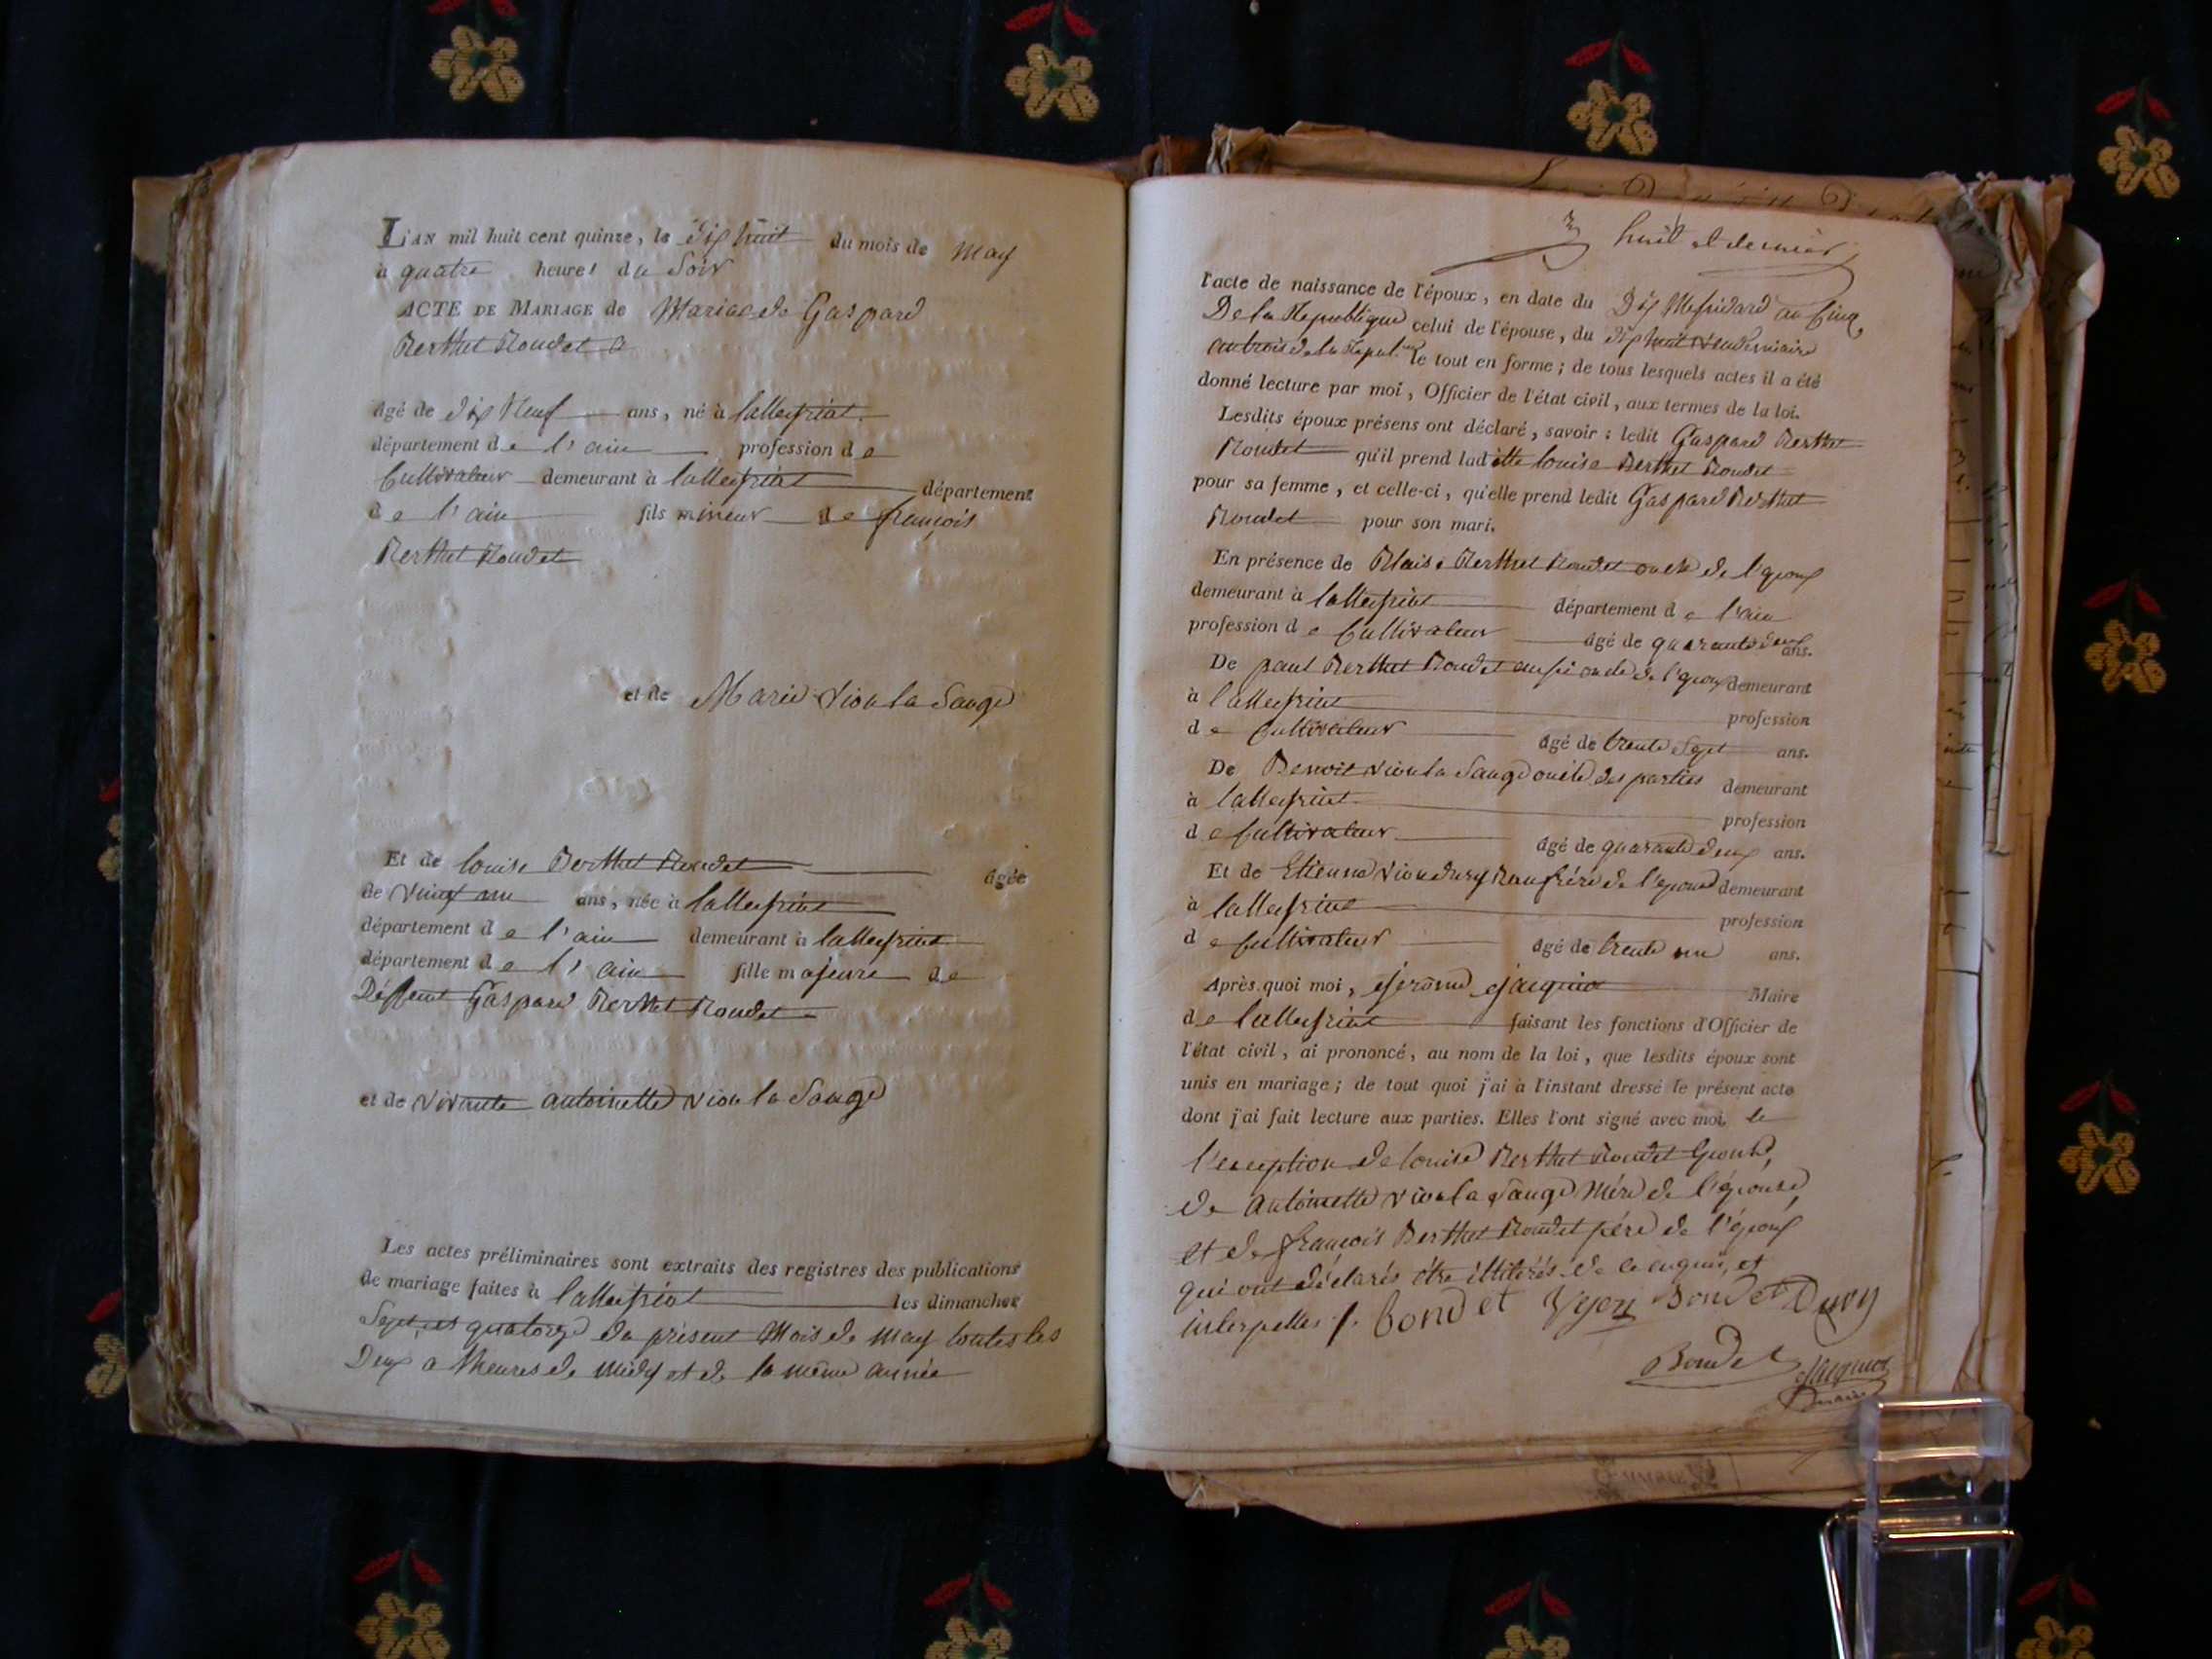 L'AN mil huit cent quinze, le dix huit du mois de May
à quatre heures du Soir
ACTE DE MARIAGE de Mariage de Gaspard
Berthet Bondet
âgé de dix Neuf ans, né à lalleyriat
département de l'ain profession de
Cultivateur demeurant à lalleyriat département
de l'ain fils mineur de françois
Berthet Bondet
et de Marie Vion la Sauge
Et de louise Berthet Bondet âgée
de vingt un ans, née à lalleyriat
département de l'ain demeurant à lalleyriat
département de l'ain fille majeure de
Deffunt Gaspard Berthet Bondet
et de vivante antoinette vion la Sauge
Les actes préliminaires sont extraits des registres des publications
de mariage faites à lalleyriat les dimanches
Sept, et quatorze du présent Mois de May toutes les
Deux a heures de midy et de la même année
3 huit et dernier
l'acte de naissance de l'époux, en date du Dix Messidard an Cinq
De la Republique celui de l'épouse, du dix huit vendemiaire
an trois de la Republ. le tout en forme; de tous lesquels actes il a été
donné lecture par moi, Officier de l'état civil, aux termes de la loi.
Lesdits époux présens ont déclaré, savoir: ledit Gaspard Berthet
Bondet qu'il prend ladite louise Berthet Bondet
pour sa femme, et celle-ci, qu'elle prend ledit Gaspard Berthet
Bondet pour son mari.
En présence de Blaise Berthet Bondet oncle de l'epoux
demeurant à lalleyriat département de l'ain
profession de Cultivateur âgé de quarante deux ans.
De paul Berthet Bondet aussi oncle de l'epoux demeurant
à lalleyriat profession
de Cultivateur âgé de trente Sept ans.
De Benoit vion la Sauge oncle des parties demeurant
à lalleyriat profession
de Cultivateur âgé de quarante deux ans.
Et de Etienne vion dury Beaufrère de l'epoux demeurant
à lalleyriat profession
de Cultivateur âgé de trente un ans.
Après quoi moi, jerôme jacquiot Maire
de lalleyriat faisant les fonctions d'Officier de
l'état civil, ai prononcé, au nom de la loi, que lesdits époux sont
unis en mariage; de tout quoi j'ai à l'instant dressé le présent acte
dont j'ai fait lecture aux parties. Elles l'ont signé avec moi, le
l'exception de louise Berthet Bondet Epouse,
de antoinette vion la Sauge Mère de l'épouse,
et de françois Berthet Bondet père de l'époux
qui ont déclarés être illiterés de ce enquis, et
interpelles. Bondet Bondet Dury
Bondet Jacquiot
maire